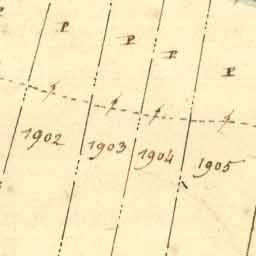 P P P P
1902 1903 1904 1905